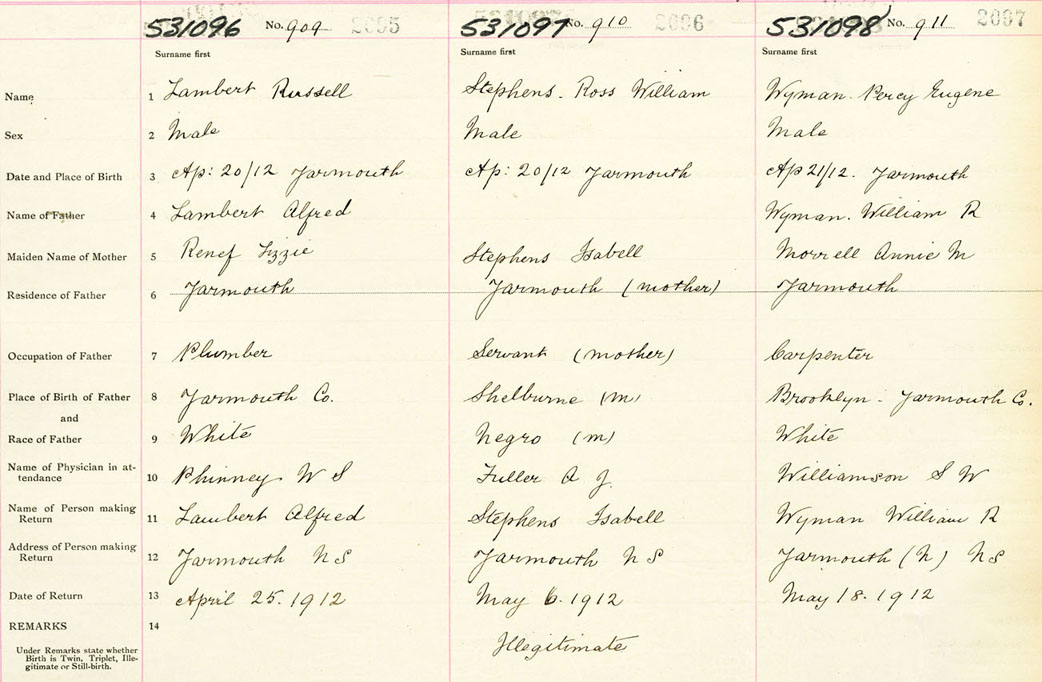 531096 No. 909 2095 531097 No. 910 2096 531098 No. 911 2097
Surname first Surname first Surname first
Name 1 Lambert Russell Stephens. Ross William Wyman. Percy Eugene
Sex 2 Male Male Male
Date and Place of Birth 3 Ap: 20/12 Yarmouth Ap: 20/12 Yarmouth Ap 21/12. Yarmouth
Name of Father 4 Lambert Alfred Wyman. William R
Maiden Name of Mother 5 Lizzie Stephens Isabell Morrell Annie M
Residence of Father 6 Yarmouth Yarmouth (mother) Yarmouth
Occupation of Father 7 Plumber Servant (mother) Carpenter
Place of Birth of Father 8 Yarmouth Co. Shelburne (m) Brooklyn. Yarmouth Co.
and
Race of Father 9 White Negro (m) White
Name of Physician in at-
tendance 10 Phinney W S Fuller A J. Williamson S W
Name of Person making
Return 11 Lambert Alfred Stephens Isabell Wyman William R
Address of Person making
Return 12 Yarmouth N S Yarmouth N S Yarmouth (N) N S
Date of Return 13 April 25. 1912 May 6. 1912 May 18. 1912
REMARKS 14
Under Remarks state whether
Birth is Twin, Triplet, Ille-
gitimate or Still-birth.
Illegitimate